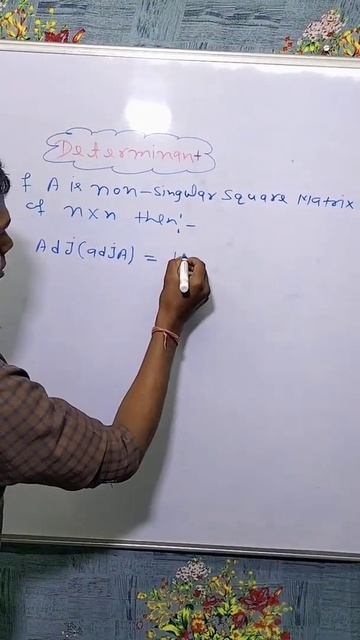 Determinant
f A is non-singular square Matrix
of n×n then:-
Adj(adjA) =